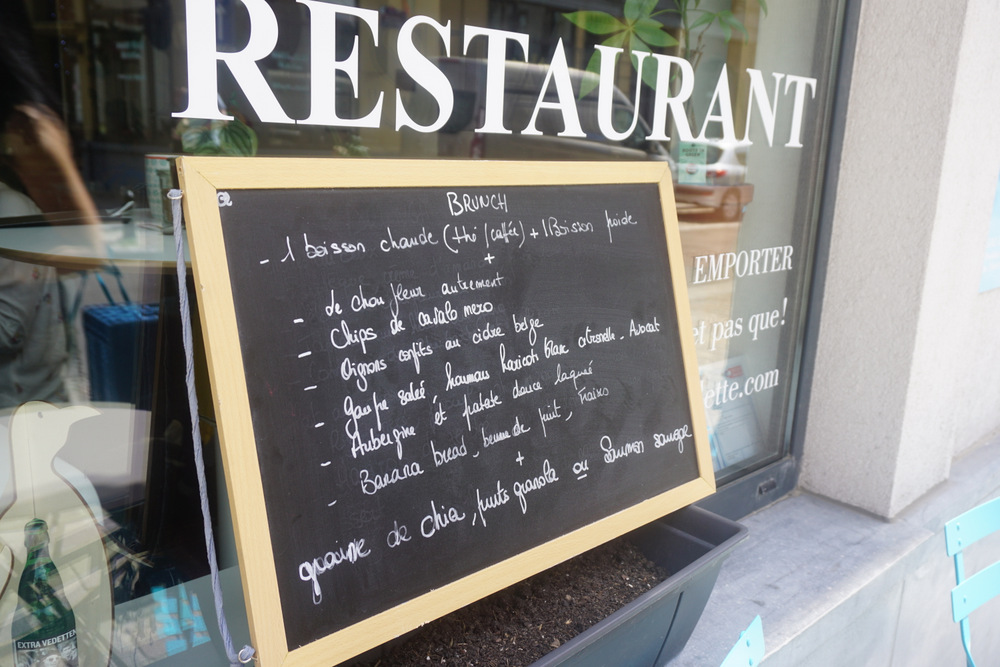 RESTAURANT
BRUNCH
- 1 boisson chaude (thé/caffée) + 1 Boisson froide
+
- Le chou fleur autrement
- Chips de cavalo nero
- Oignons confits au cidre belge
- Gaufre salée, houmous haricots blanc citronelle. Avocat
- Aubergine et patate douce laqué
- Banana bread, beurre de fruit, Fraises
+
graine de chia, fruits granola ou Saumon sauvage
EMPORTER
et pas que!
ette.com
EXTRA VEDETTEN